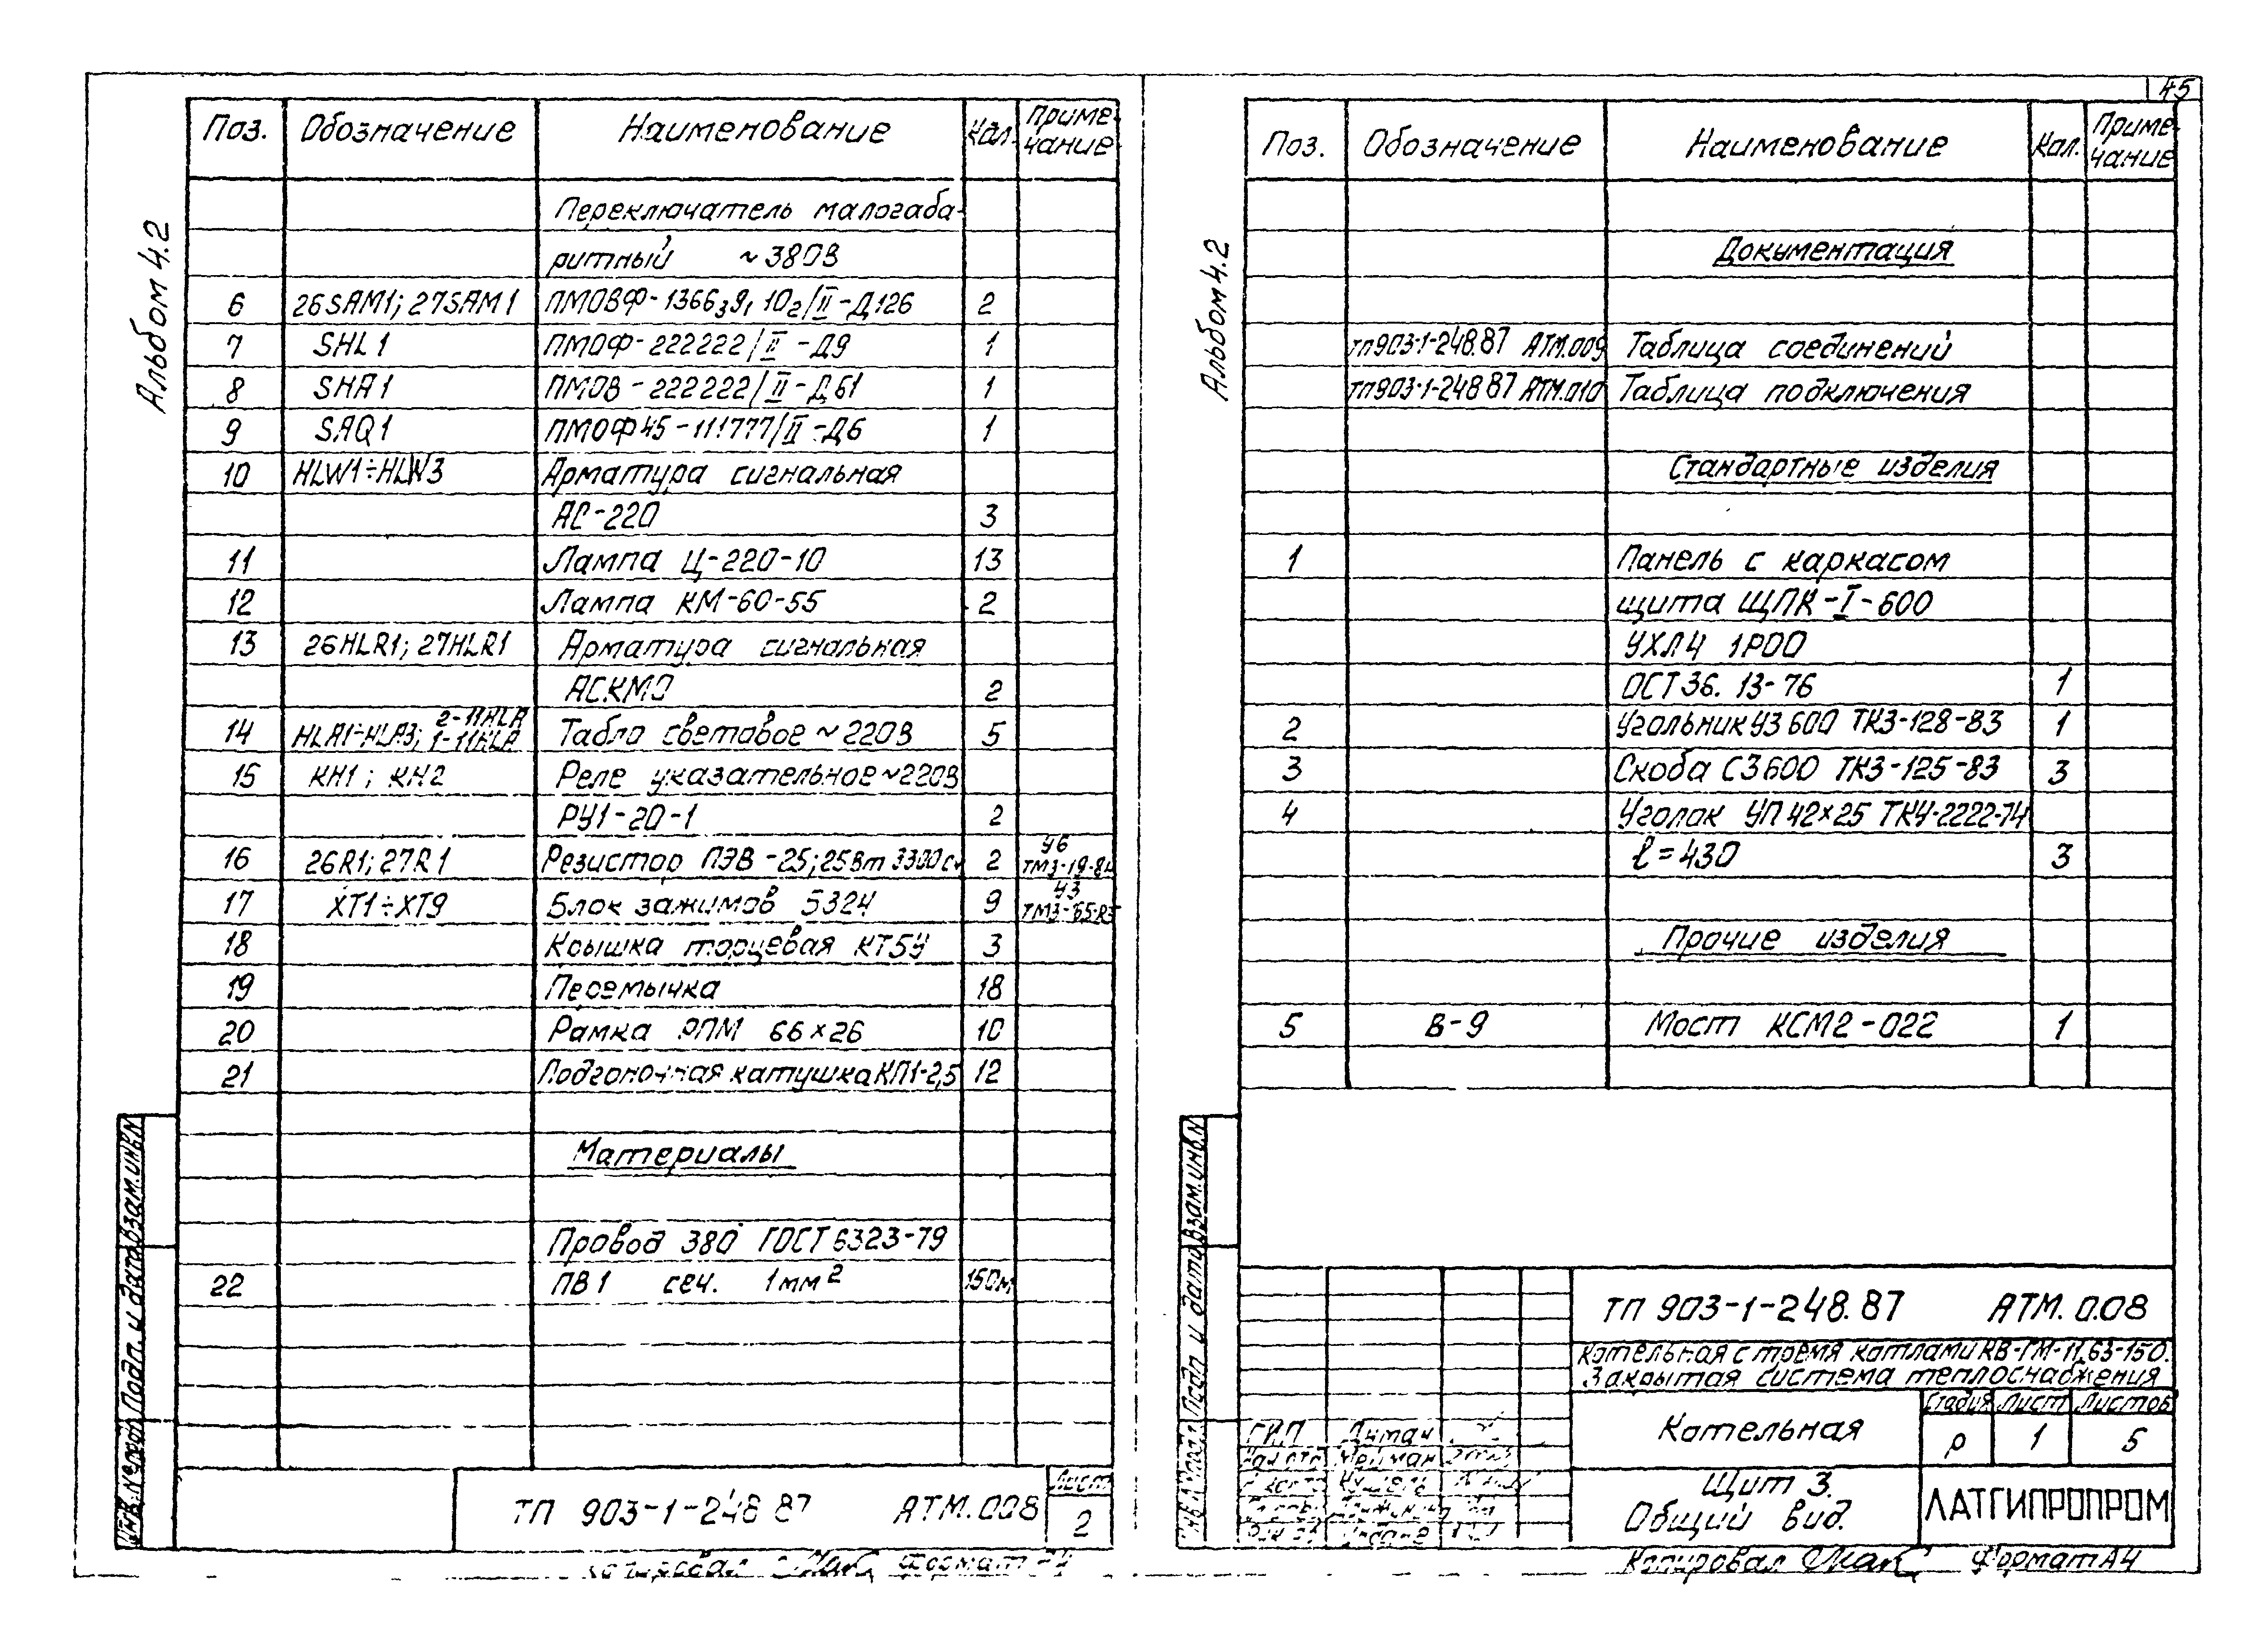 45
Альбом 4.2
Поз. Обозначение Наименование Кол. Приме-
чание
Переключатель малогаба-
ритный ~380В
6 26SAM1; 27SAM1 ПМОВФ-1366₃9₁ 10₂/II-Д126 2
7 SHL1 ПМОФ-222222/II-Д9 1
8 SHA1 ПМОВ-222222/II-Д61 1
9 SAQ1 ПМОФ45-111777/II-Д6 1
10 HLW1÷HLW3 Арматура сигнальная
АС-220 3
11 Лампа Ц-220-10 13
12 Лампа КМ-60-55 2
13 26HLR1; 27HLR1 Арматура сигнальная
АСКМО 2
2-11HLA
14 HLA1-HLA3; 1-11HLA Табло световое ~220В 5
15 КН1; КН2 Реле указательное ~220В
РУ1-20-1 2
16 26R1; 27R1 Резистор ПЭВ-25; 25Вт 3300 2 У6
ТМ3-19-84
17 XT1÷XT9 Блок зажимов Б324 9 У3
18 Крышка торцевая КТ5У 3
19 Перемычка 18
20 Рамка РПМ 66×26 10
21 Подгоночная катушка КП1-2,5 12
Материалы
Провод 380 ГОСТ 6323-79
22 ПВ1 сеч. 1мм² 150м
ТП 903-1-248.87 АТМ.008
Лист
2
Взам.инв.№
Подп. и дата
Копировал Формат А4
Альбом 4.2
Поз. Обозначение Наименование Кол. Приме-
чание
Документация
ТП903-1-248.87 АТМ.009 Таблица соединений
ТП903-1-248.87 АТМ.010 Таблица подключения
Стандартные изделия
1 Панель с каркасом
щита ЩПК-I-600
УХЛ4 1Р00
ОСТ 36.13-76 1
2 Угольник У3 600 ТК3-128-83 1
3 Скоба С3 600 ТК3-125-83 3
4 Уголок УП 42×25 ТК4-2222-74
ℓ=430 3
Прочие изделия
5 В-9 Мост КСМ2-022 1
ТП 903-1-248.87 АТМ.0.08
Котельная с тремя котлами КВ-ГМ-11,63-150.
Закрытая система теплоснабжения
Котельная
Стадия Лист Листов
Р 1 5
Щит 3.
Общий вид.
ЛАТГИПРОПРОМ
ГИП
Взам.инв.№
Подп. и дата
Копировал Формат А4